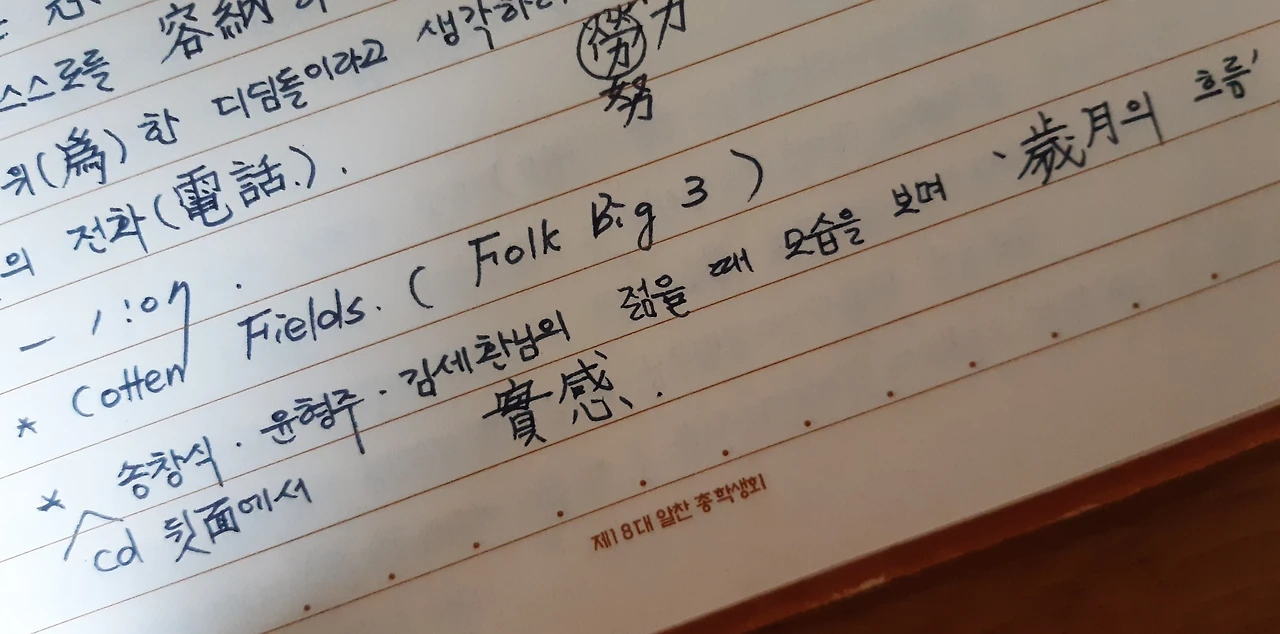 스스로를 容納
위(爲)한 디딤돌이라고 생각하
勞力
努
의 전화(電話).
* Cotten Fields. ( Folk Big 3 )
* 송창식 · 윤형주 · 김세환님의 젊을 때 모습을 보며 '歲月의 흐름'
實感.
cd 뒷面에서
제18대 알찬 총학생회